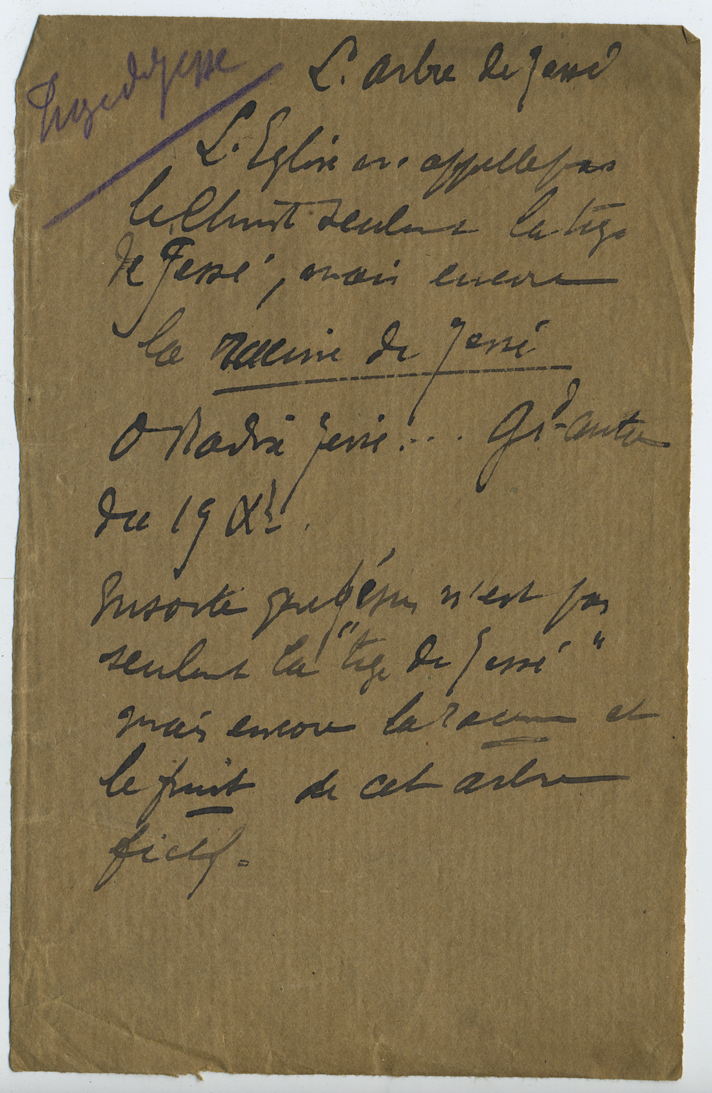 Tige de Jessé
L'arbre de Jessé
L'Eglise n'appelle pas
le Christ seulemt la tige
de Jessé, mais encore
la racine de Jessé
O Radix Jesse!... Gde antre
du 19 Xbre.
Ensorte que Jésus n'est pas
seulemt la "tige de Jessé"
mais encore la racine et
le fruit de cet arbre
fictif.